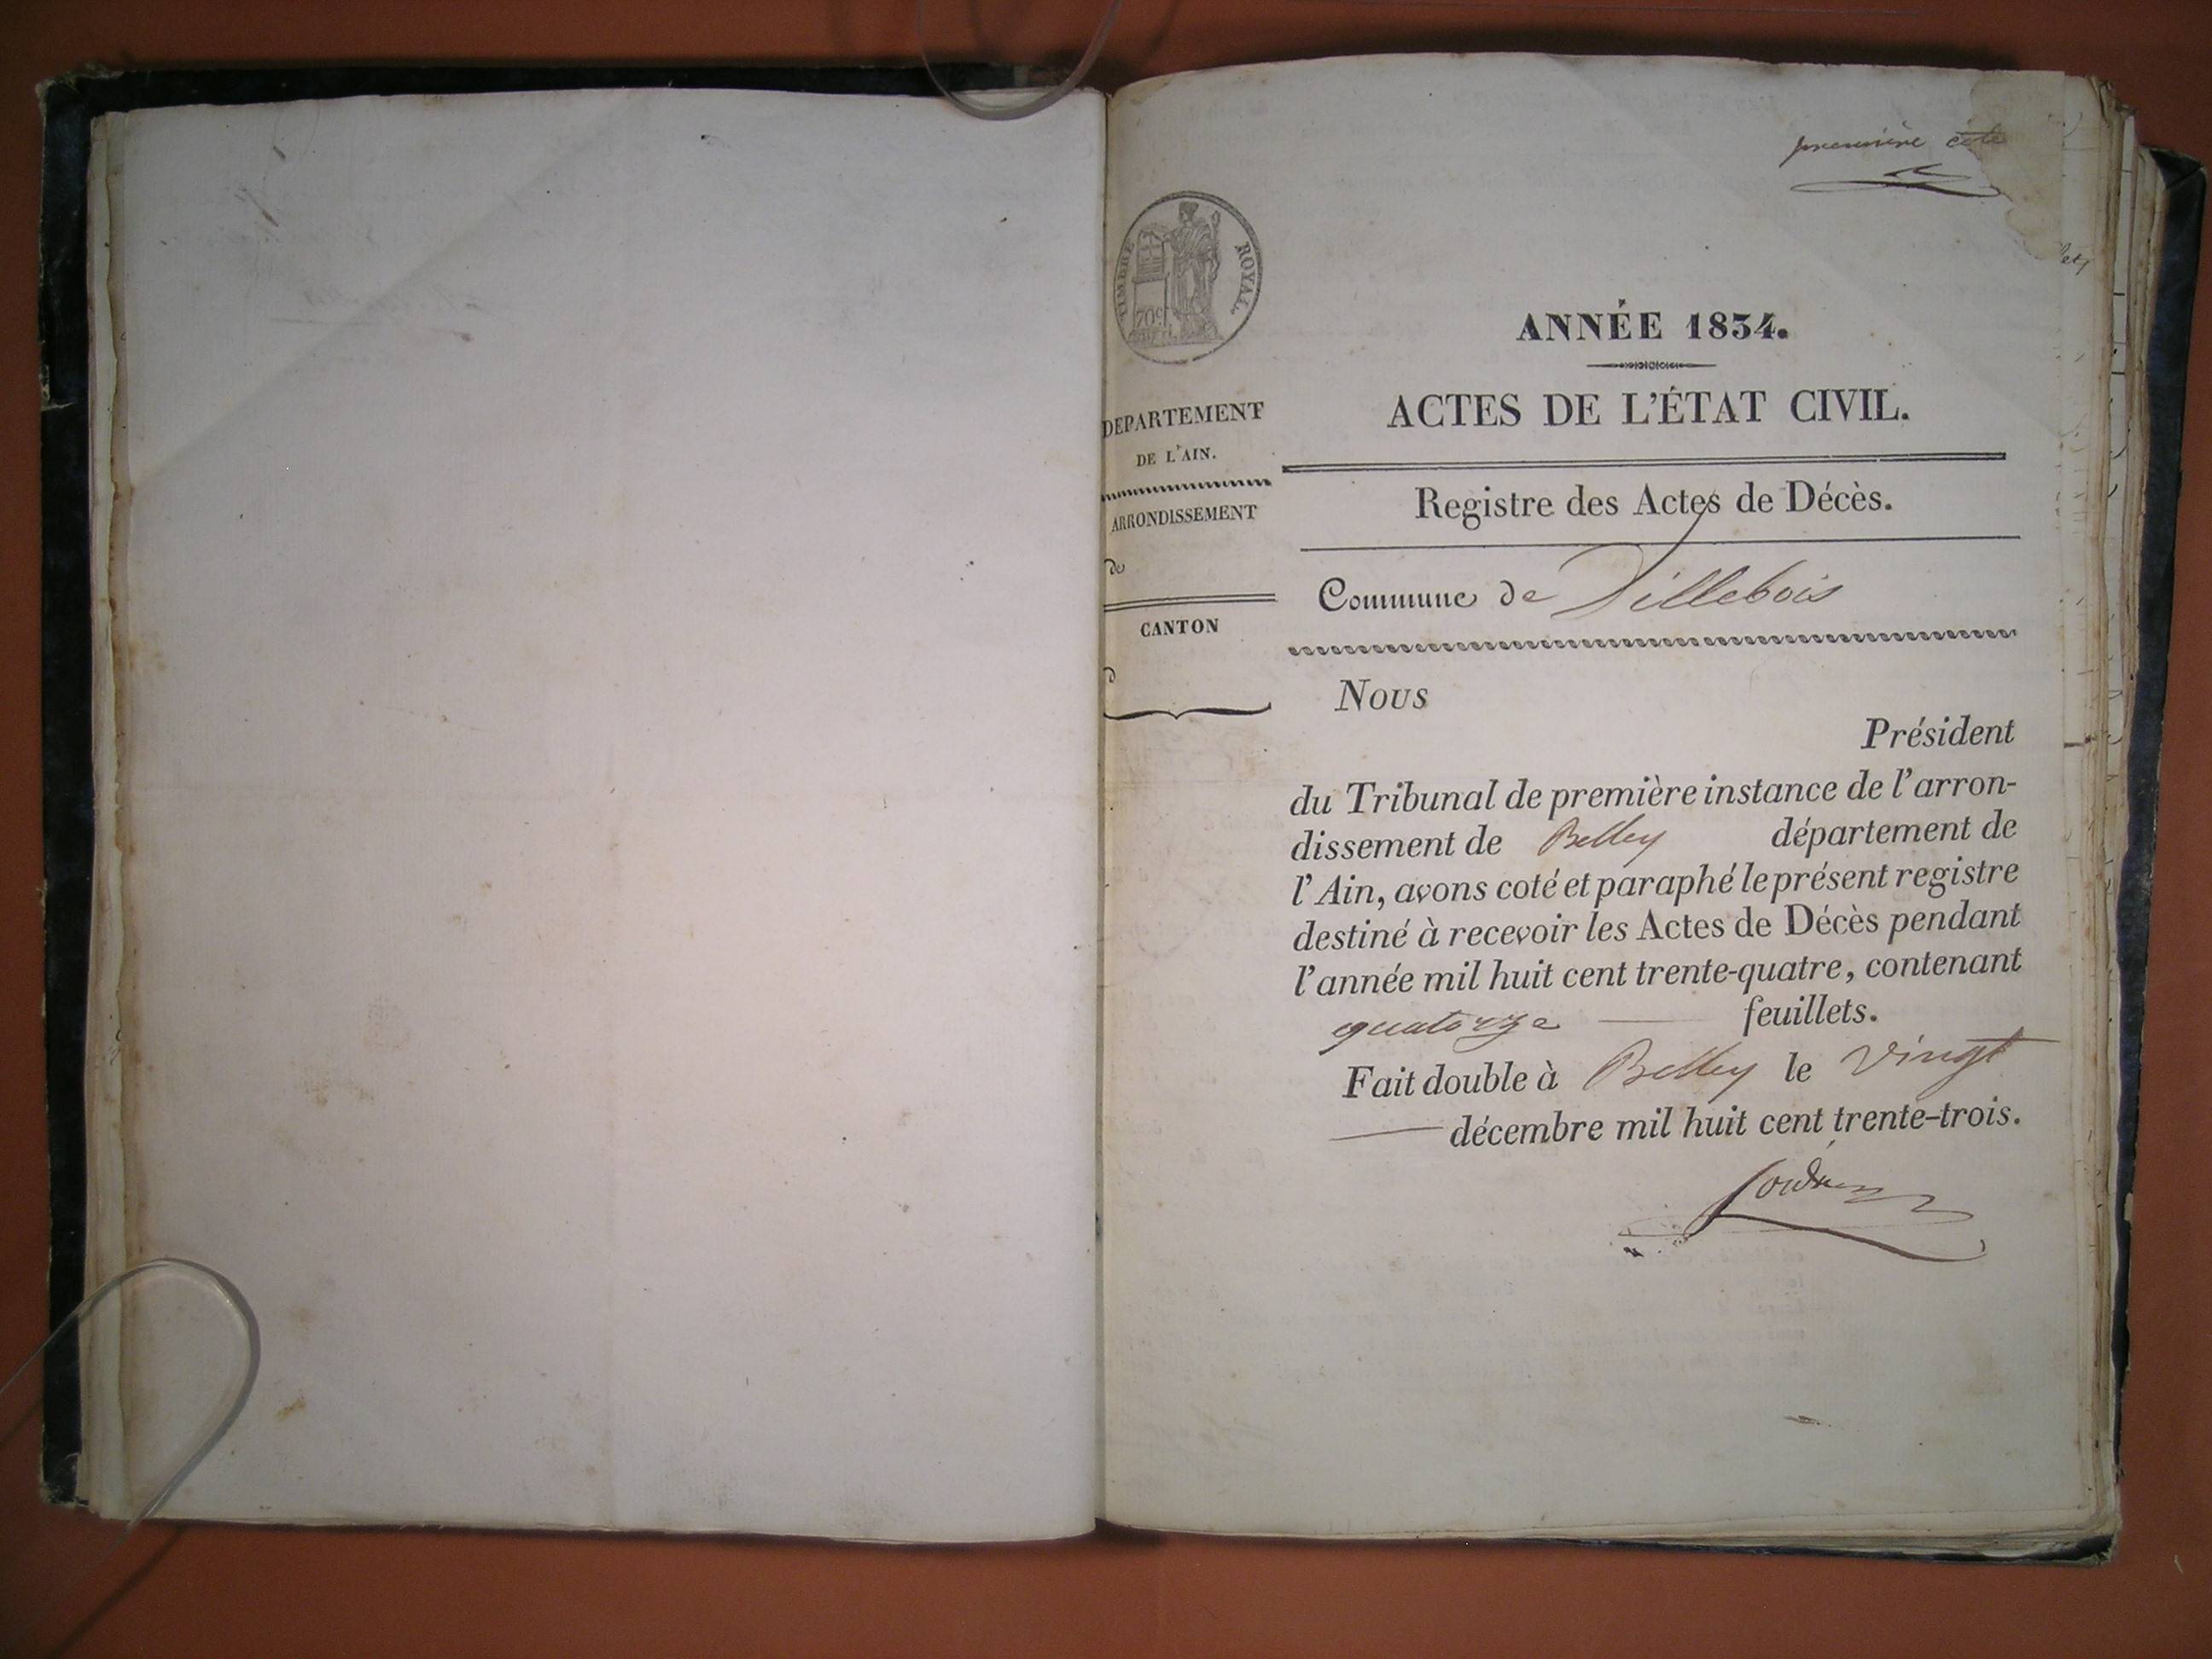 première cote
TIMBRE ROYAL
70c
ANNÉE 1834.
ACTES DE L'ÉTAT CIVIL.
DEPARTEMENT
DE L'AIN.
ARRONDISSEMENT
de
CANTON
d
Registre des Actes de Décès.
Commune de Villebois
Nous
Président
du Tribunal de première instance de l'arron-
dissement de Belley département de
l'Ain, avons coté et paraphé le présent registre
destiné à recevoir les Actes de Décès pendant
l'année mil huit cent trente-quatre, contenant
quatorze feuillets.
Fait double à Belley le vingt
décembre mil huit cent trente-trois.